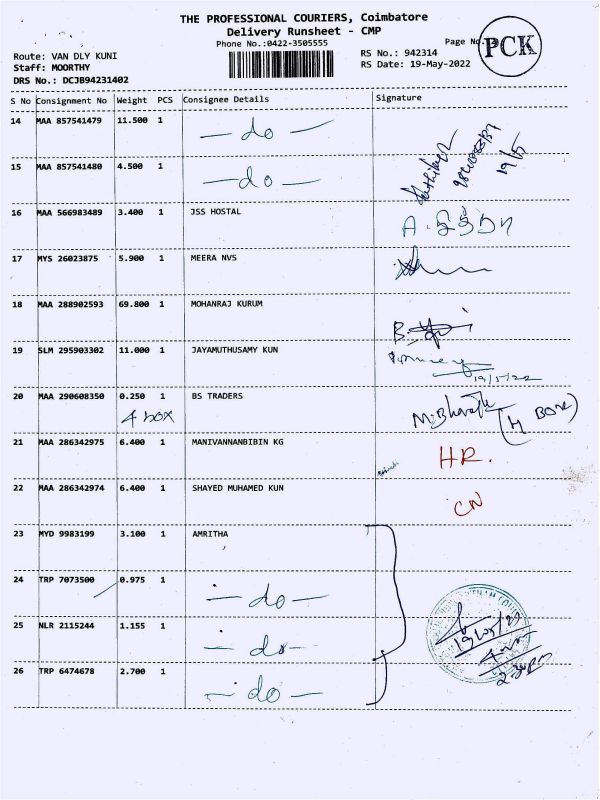 THE PROFESSIONAL COURIERS, Coimbatore
Delivery Runsheet - CMP
Phone No.:0422-3505555
Page No.
PCK
Route: VAN DLY KUNI
Staff: MOORTHY
DRS No.: DCJB94231402
RS No.: 942314
RS Date: 19-May-2022
S No Consignment No Weight PCS Consignee Details Signature
14 MAA 857541479 11.500 1 — do —
15 MAA 857541480 4.500 1 — do —
19/5
16 MAA 566983489 3.400 1 JSS HOSTAL
17 MYS 26023875 5.900 1 MEERA NVS
18 MAA 288902593 69.800 1 MOHANRAJ KURUM
19 SLM 295903302 11.000 1 JAYAMUTHUSAMY KUN
19/5/22
20 MAA 290608350 0.250 1 BS TRADERS
4 box M. Bharath (4 BOX)
21 MAA 286342975 6.400 1 MANIVANNANBIBIN KG HR.
22 MAA 286342974 6.400 1 SHAYED MUHAMED KUN CN
23 MYD 9983199 3.100 1 AMRITHA
24 TRP 7073500 0.975 1 — do —
25 NLR 2115244 1.155 1 — do —
26 TRP 6474678 2.700 1 — do —